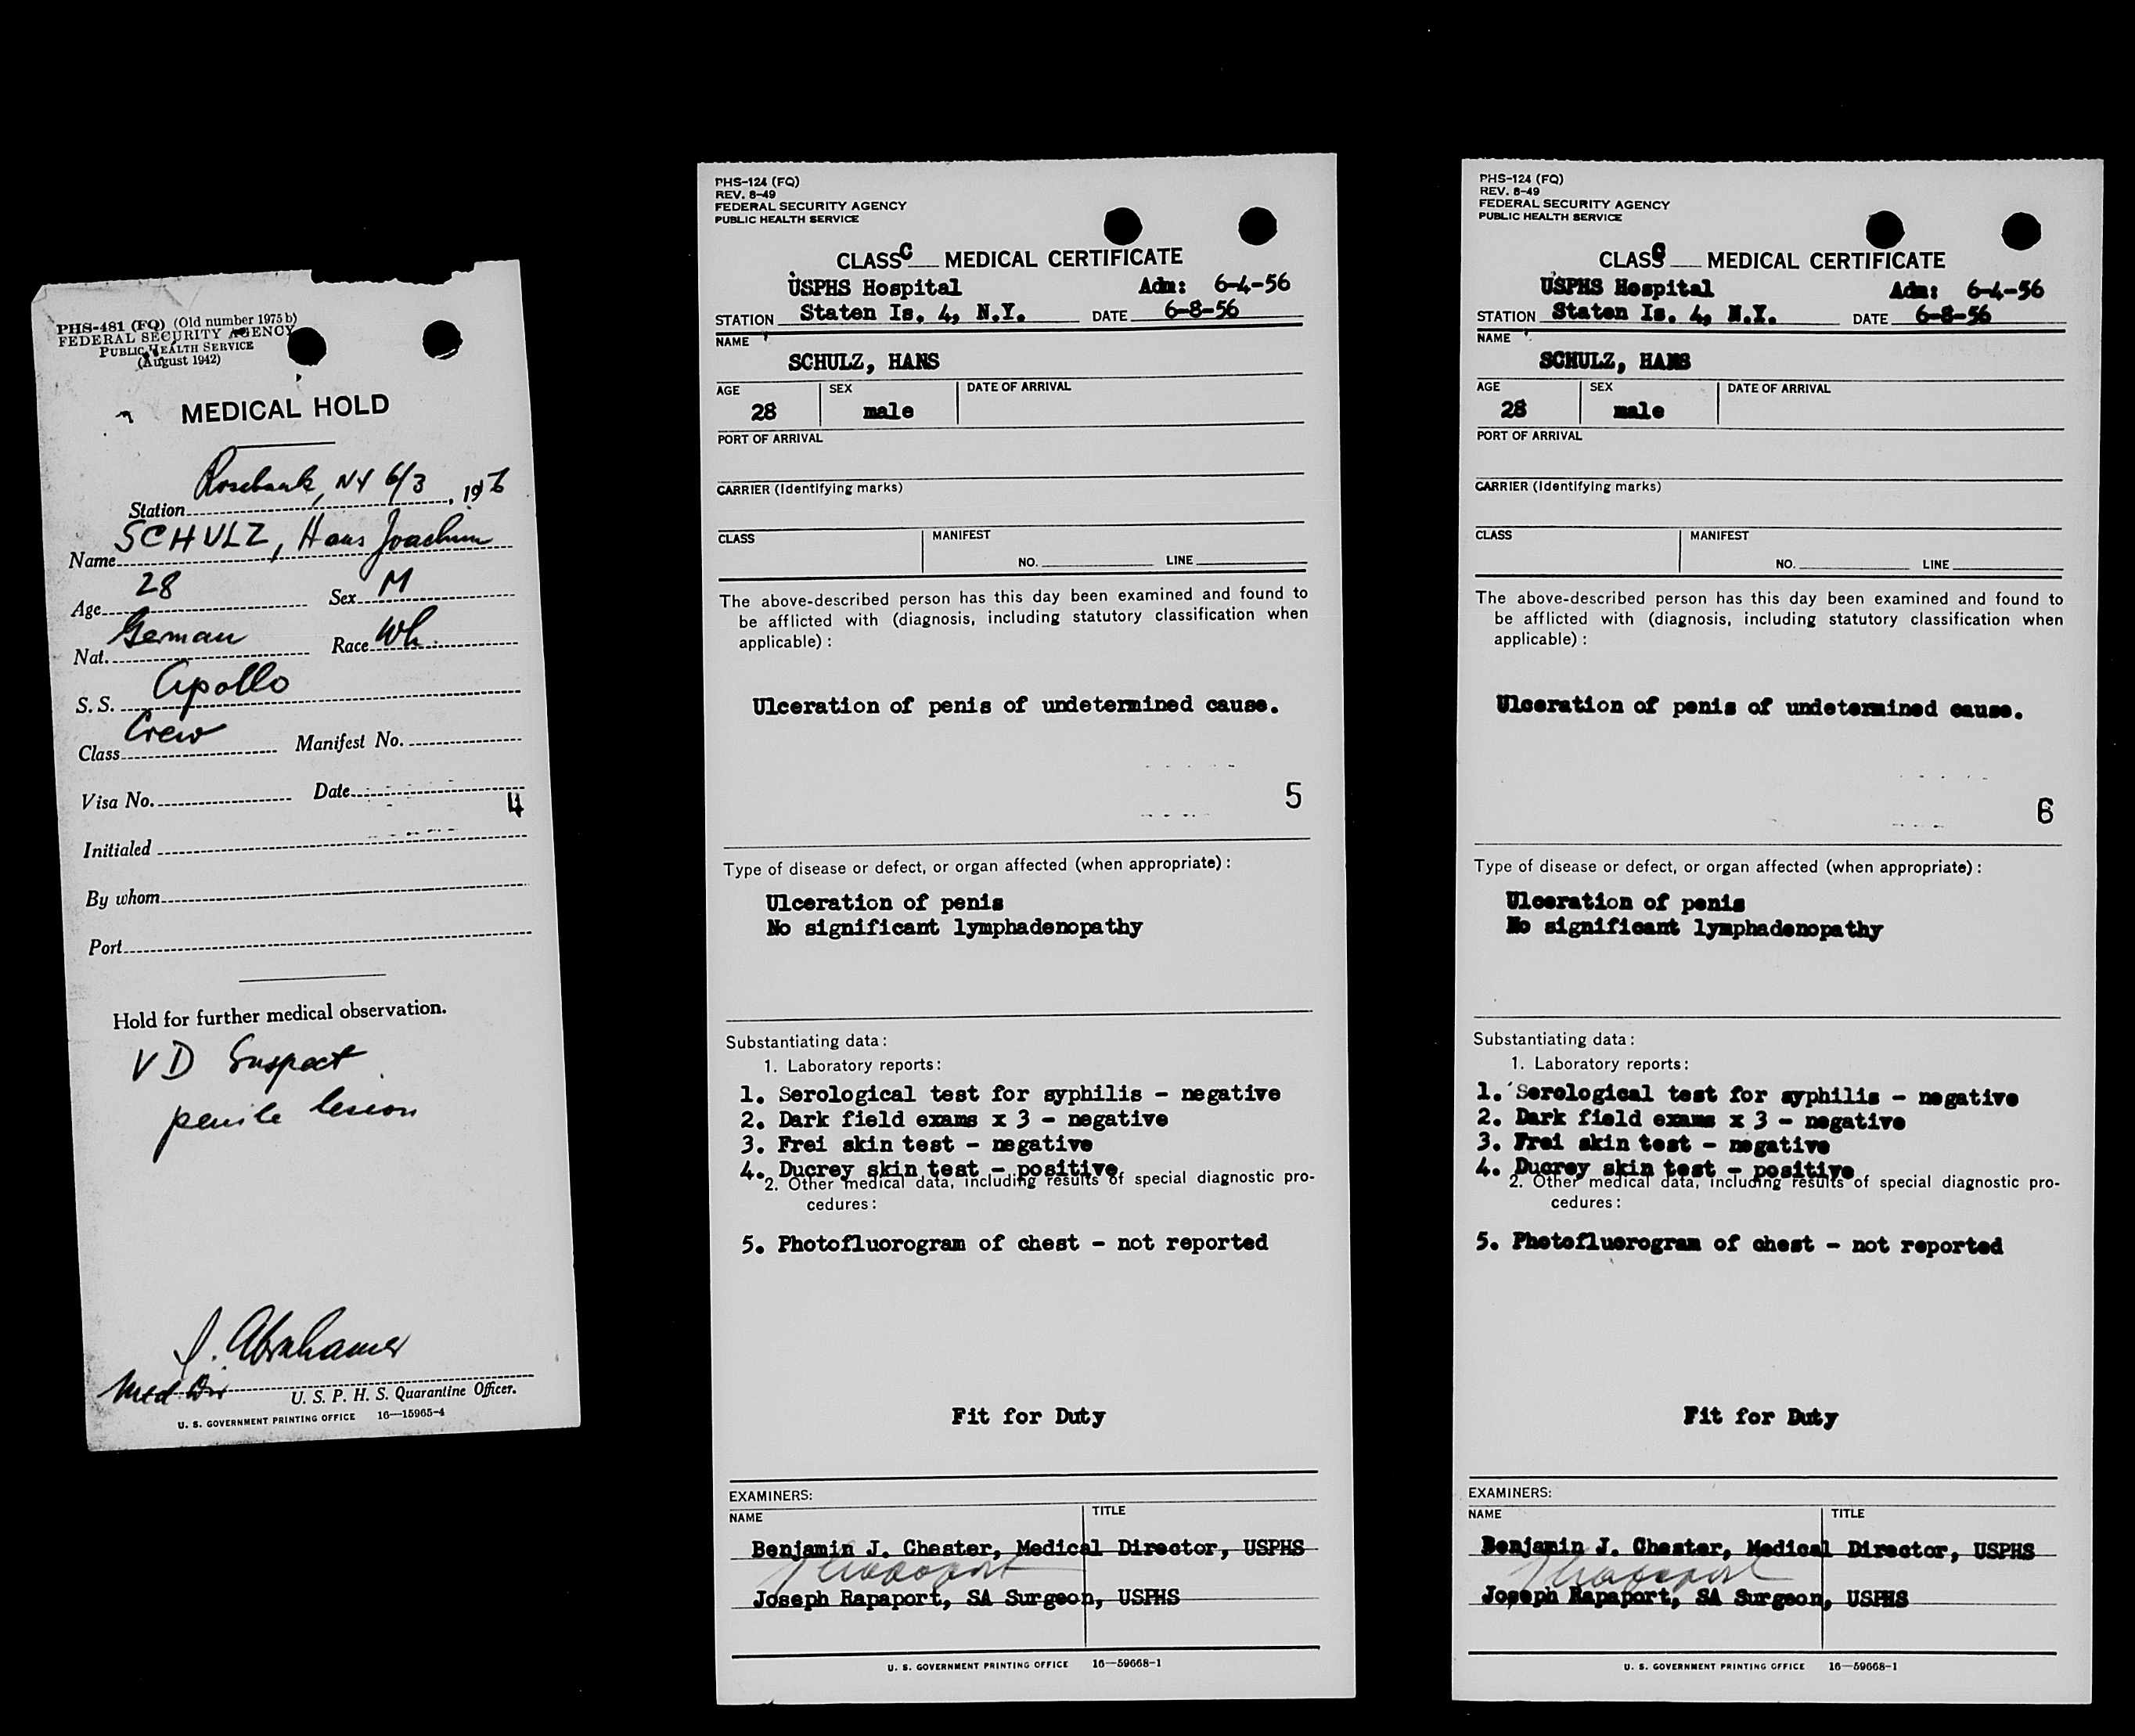 PHS-481 (FQ) (Old number 1975 b)
FEDERAL SECURITY AGENCY
PUBLIC HEALTH SERVICE
(August 1942)
MEDICAL HOLD
Station Rosebank, NY 6/3, 1956
Name SCHULZ, Hans Joachim
Age 28 Sex M
Nat. German Race Wh.
S. S. Apollo
Class Crew Manifest No.
Visa No. Date
4
Initialed
By whom
Port
Hold for further medical observation.
VD Suspect
penile lesion
Med. Dir
U. S. P. H. S. Quarantine Officer.
U. S. GOVERNMENT PRINTING OFFICE 16—15965-4
PHS-124 (FQ)
REV. 8-49
FEDERAL SECURITY AGENCY
PUBLIC HEALTH SERVICE
CLASS C MEDICAL CERTIFICATE
USPHS Hospital Adm: 6-4-56
STATION Staten Is. 4, N.Y. DATE 6-8-56
NAME
SCHULZ, HANS
AGE SEX DATE OF ARRIVAL
28 male
PORT OF ARRIVAL
CARRIER (Identifying marks)
CLASS MANIFEST
NO. LINE
The above-described person has this day been examined and found to
be afflicted with (diagnosis, including statutory classification when
applicable) :
Ulceration of penis of undetermined cause.
5
Type of disease or defect, or organ affected (when appropriate) :
Ulceration of penis
No significant lymphadenopathy
Substantiating data :
1. Laboratory reports :
1. Serological test for syphilis - negative
2. Dark field exams x 3 - negative
3. Frei skin test - negative
4. Ducrey skin test - positive
2. Other medical data, including results of special diagnostic pro-
cedures :
5. Photofluorogram of chest - not reported
Fit for Duty
EXAMINERS:
NAME TITLE
Benjamin J. Chester, Medical Director, USPHS
J Rapaport
Joseph Rapaport, SA Surgeon, USPHS
U. S. GOVERNMENT PRINTING OFFICE 16—59668-1
PHS-124 (FQ)
REV. 8-49
FEDERAL SECURITY AGENCY
PUBLIC HEALTH SERVICE
CLASS C MEDICAL CERTIFICATE
USPHS Hospital Adm: 6-4-56
STATION Staten Is. 4, N.Y. DATE 6-8-56
NAME
SCHULZ, HANS
AGE SEX DATE OF ARRIVAL
28 male
PORT OF ARRIVAL
CARRIER (Identifying marks)
CLASS MANIFEST
NO. LINE
The above-described person has this day been examined and found to
be afflicted with (diagnosis, including statutory classification when
applicable) :
Ulceration of penis of undetermined cause.
6
Type of disease or defect, or organ affected (when appropriate) :
Ulceration of penis
No significant lymphadenopathy
Substantiating data :
1. Laboratory reports :
1. Serological test for syphilis - negative
2. Dark field exams x 3 - negative
3. Frei skin test - negative
4. Ducrey skin test - positive
2. Other medical data, including results of special diagnostic pro-
cedures :
5. Photofluorogram of chest - not reported
Fit for Duty
EXAMINERS:
NAME TITLE
Benjamin J. Chester, Medical Director, USPHS
J Rapaport
Joseph Rapaport, SA Surgeon, USPHS
U. S. GOVERNMENT PRINTING OFFICE 16—59668-1